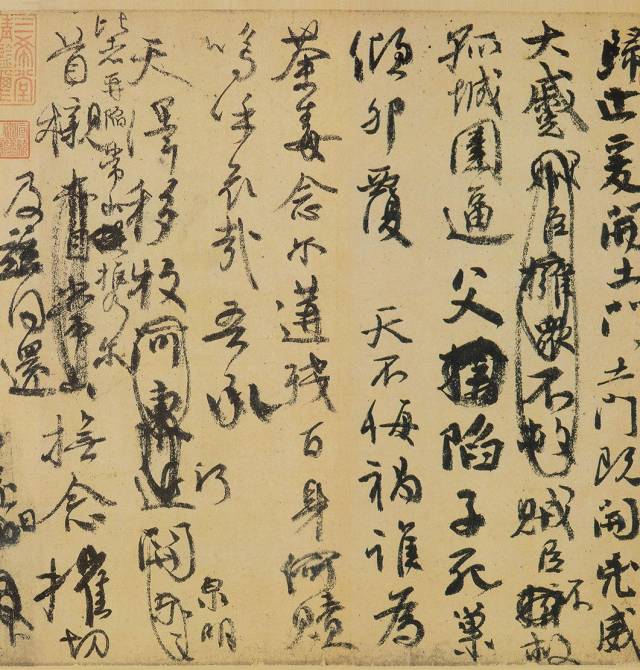 歸止爰開土門土門既開凶威
大蹙賊臣擁衆不救賊臣不擁救
孤城圍逼父擒陷子死巢
傾卵覆 天不悔禍誰為
荼毒念尔遘殘百身何贖
嗚呼哀哉吾承
天澤移牧河東近 河關 泉明
比者再陷常山携尔
首櫬 常山 撫念摧切
及茲同還
三希堂精鑑璽